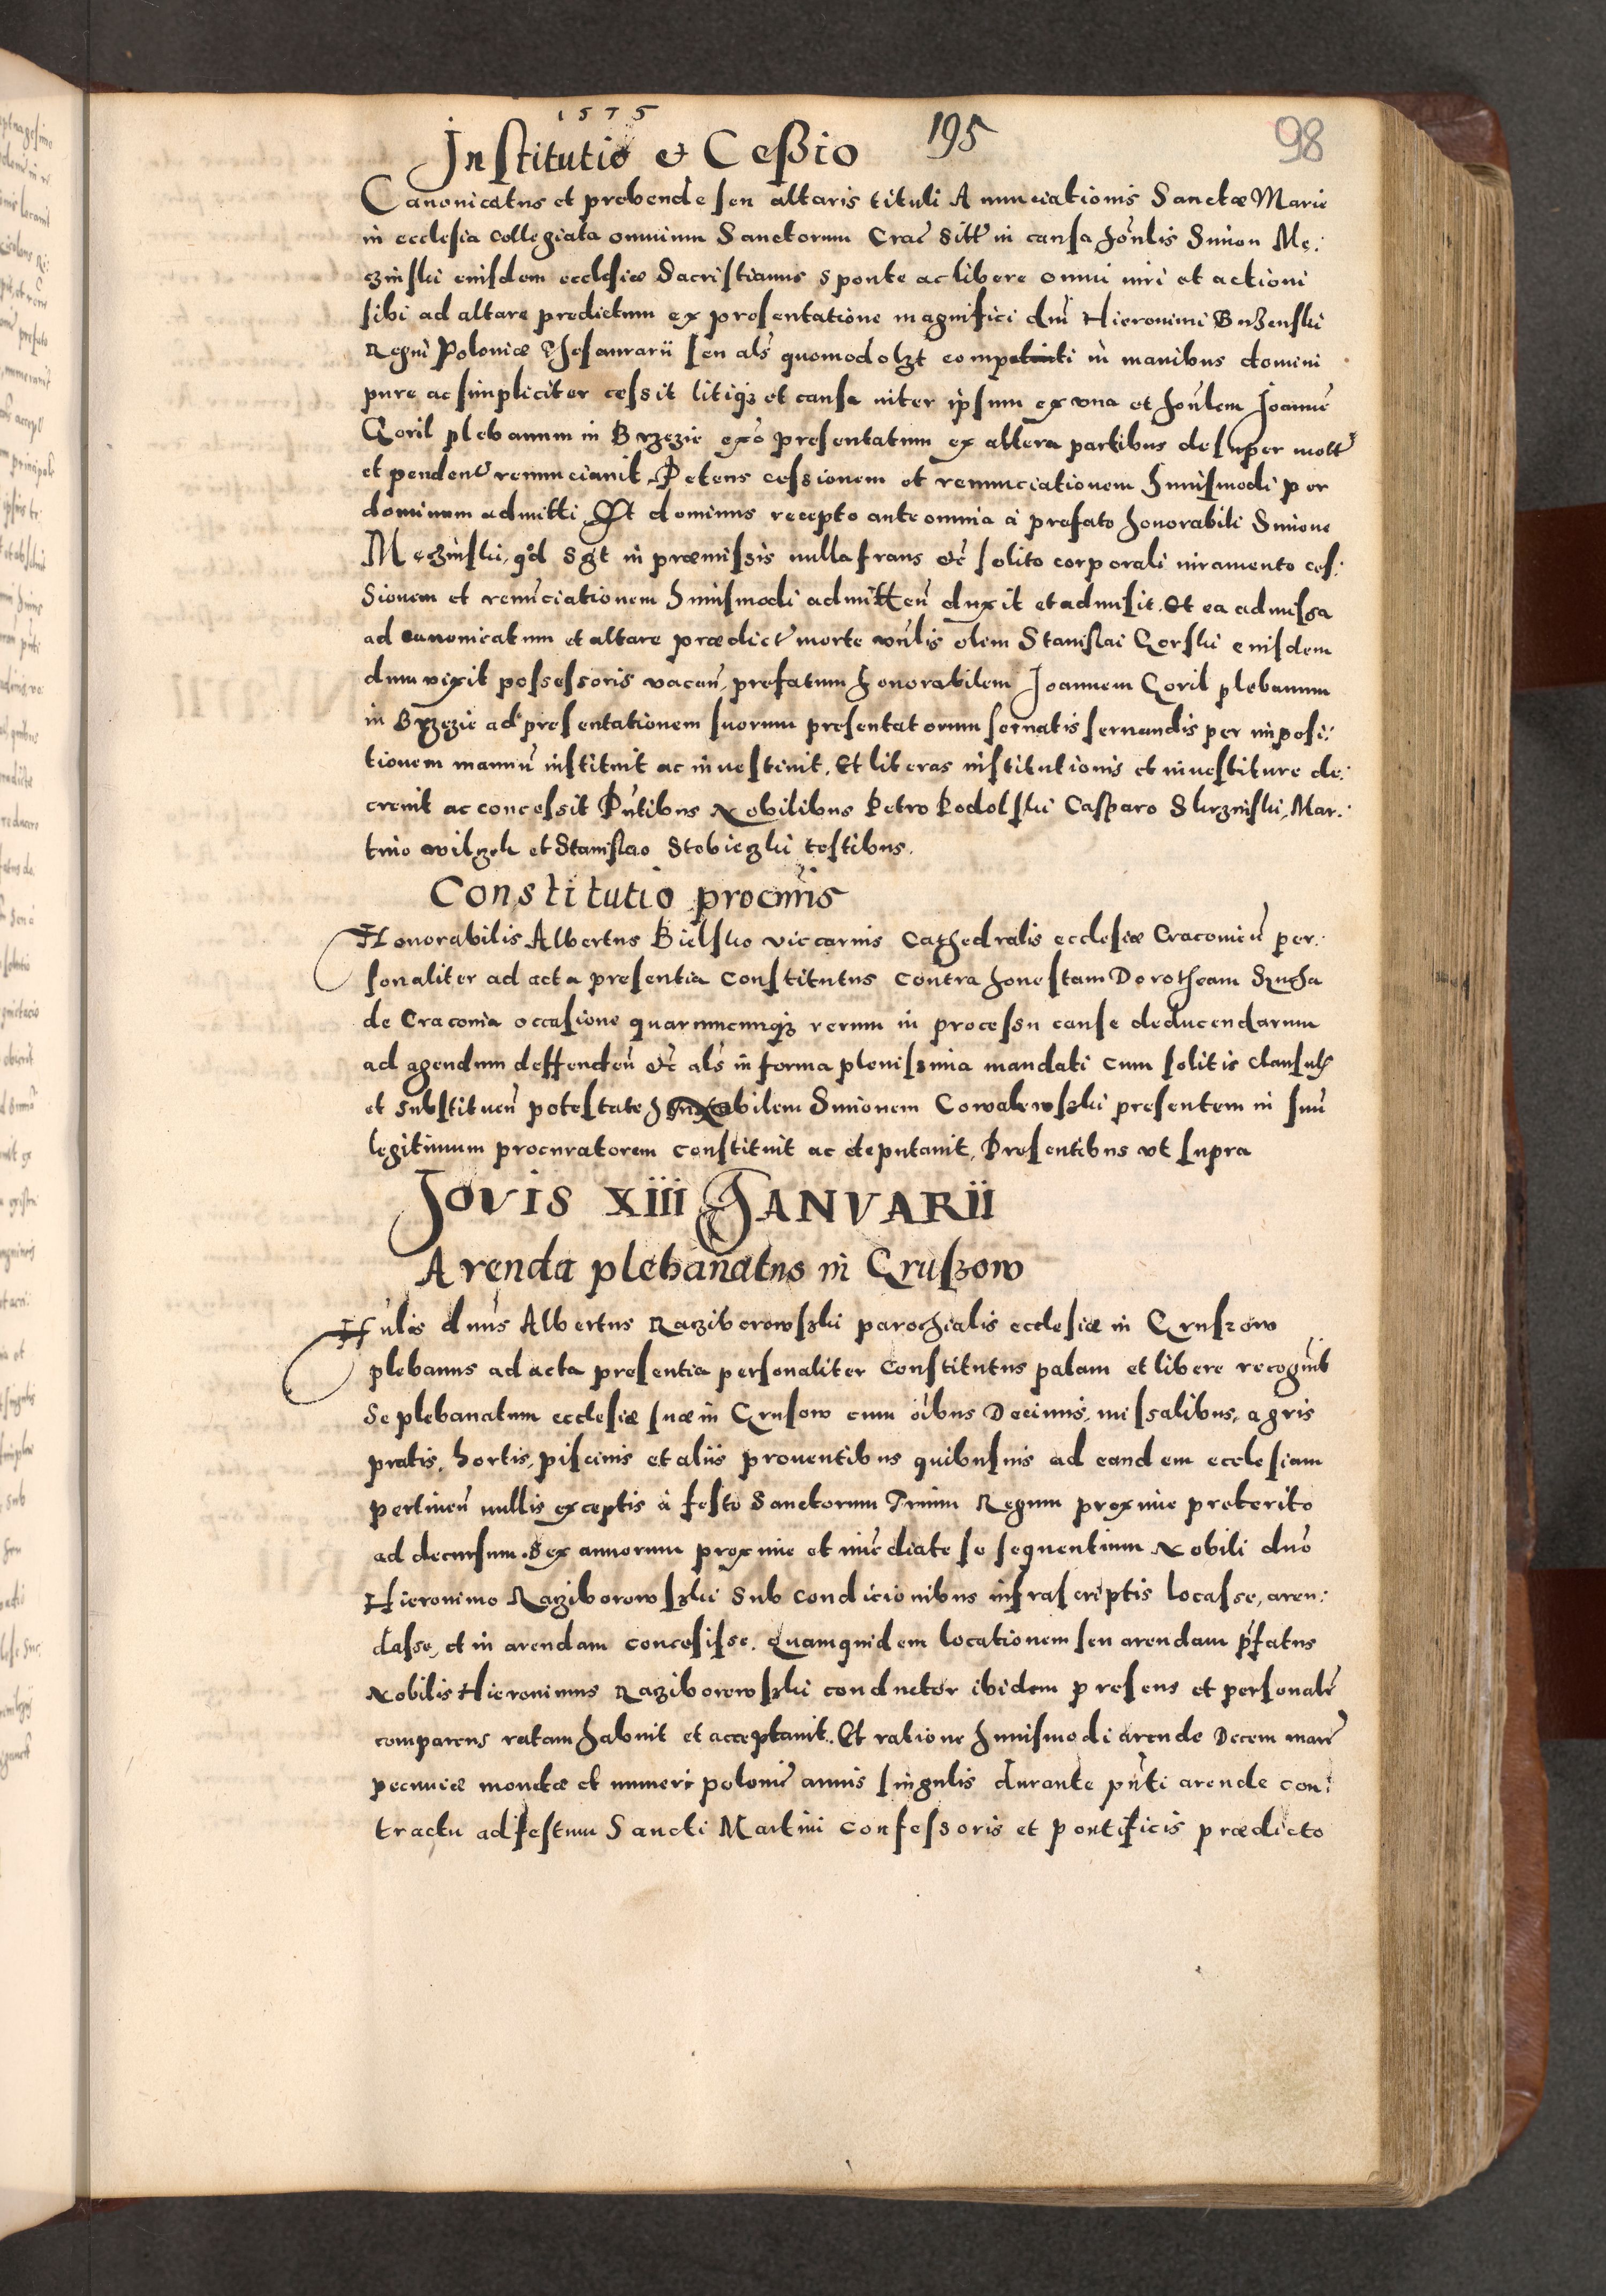 1575
Institutio et Cessio 195 98
Canonicatus et prebende seu altaris tituli Annunciationis Sanctæ Marie
in ecclesia collegiata omnium Sanctorum Crac̃ sitt̃ in causa hon̄lis Simon Me:
czinski eiusdem ecclesiæ Sacristianus sponte ac libere omni iuri et actioni
sibi ad altare predictum ex presentatione magnifici dni Hieronimi Buzenski
Regni Poloniæ Thesaurarii seu als̄ quomodolzt competenti in manibus domini
pure ac simpliciter cessit litiqz et causæ inter ipsum ex vna et hon̄lem Joannē
Goril plebanum in Brzezie exō presentatum ex altera partibus desuper mott̃
et pendent̃ renunciauit. Petens cessionem et renunciationem huiusmodi per
dominum admitti Et dominus recepto ante omnia à prefato honorabili Simone
Meczinski, qd̄ sgt in præmissis nulla fraus etc̃ solito corporali iuramento ces:
sionem et renūciationem huiusmodi admitteñ duxit et admisit. Et ea admissa
ad canonicatum et altare prædict̃ morte vn̄lis olim Stanislai Gorski eiusdem
dum vixit possessoris vacañ, prefatum honorabilem Joannem Goril plebanum
in Brzezie ad presentationem suorum presentatorum seruatis seruandis per imposi:
tionem manuū instituit ac inuestiuit. Et literas institutionis et inuestiture de:
creuit ac concessit Pn̄tibus Nobilibus Petro Podolski Casparo Skrzinski, Mar:
tino wilgek et Stanislao Stobieczki testibus.
Constitutio procur̄is
Honorabilis Albertus Bielsko viccarius Cathedralis ecclesiæ Cracouieñ per:
sonaliter ad acta presentia Constitutus contra honestam Dorotheam Szucha
de Cracouia occasione quarumcunqz rerum in processu cause deducendarum
ad agendum deffendeñ etc̃ als̄ in forma plenissima mandati cum solitis clausul̃
et substitueñ potestate honorabilem Simonem Cowalewski presentem in suū
legitimum procuratorem constituit ac deputauit, Presentibus vt supra
Jovis XIII JANVARII
Arenda plebanatus in Gruszow
Hn̄lis dnūs Albertus Raziborowski parochialis ecclesiæ in Gruszow
plebanus ad acta presentia personaliter Constitutus palam et libere recognouit
Se plebanatum ecclesiæ suæ in Grusow cum oībus Decimis, missalibus, agris
pratis, hortis, piscinis et aliis prouentibus quibusuis ad eandem ecclesiam
pertineñ nullis exceptis à festo Sanctorum Trium Regum proxime preterito
ad decursum Sex annorum proxime et imēdiate se sequentium Nobili dnō
Hieronimo Raziborowski sub condicionibus infrascriptis locasse, aren:
dasse, et in arendam concesisse. Quamquidem locationem seu arendam p̄fatus
Nobilis Hieronimus Raziborowski conductor ibidem presens et personalr̃
comparens ratam habuit et acceptauit. Et ratione huiusmodi arende Decem marc̃
pecuniæ monetæ et numeri polonic̃ annis singulis durante pn̄ti arende con:
tractu ad festum Sancti Martini confessoris et pontificis prædicto